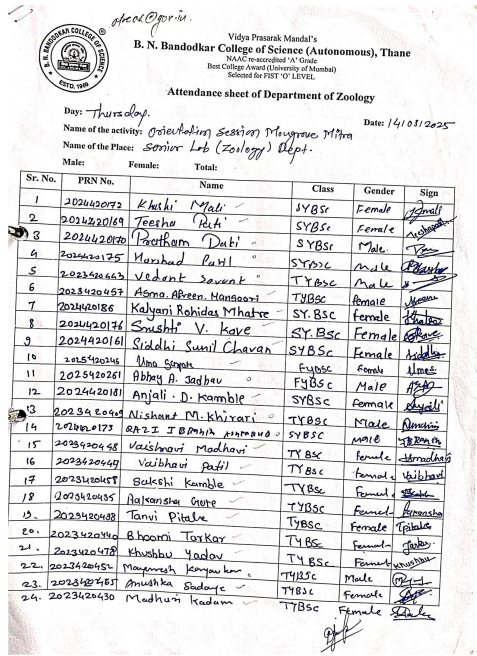 oreac@gov.in.
B. N. BANDODKAR COLLEGE OF SCIENCE
ESTD. 1969
Vidya Prasarak Mandal's
B. N. Bandodkar College of Science (Autonomous), Thane
NAAC re-accredited 'A' Grade
Best College Award (University of Mumbai)
Selected for FIST 'O' LEVEL
Attendance sheet of Department of Zoology
Day: Thursday. Date: 14/08/2025
Name of the activity: Orientation Session Mangrove Mitra
Name of the Place: Senior Lab (Zoology) Dept.
Male: Female: Total:
Sr. No. PRN No. Name Class Gender Sign
1 2024420172 Khushi Mali SYBSc Female
2 2024420169 Teesha SYBSc Female
3 2024420170 Pratham SYBSc Male.
4 2024420175 Harshad Patil SYBSC Male
5 2023420443 Vedant Savant TYBSc Male
6 2023420457 Asma. Afreen. Mansoori TYBSc female
7 2024420186 Kalyani Rohidas Mhatre SY.BSc female
8 2024420176 Srushti V. Kave SY.BSc Female
9 2024420161 Siddhi Sunil Chavan SYBSc Female
10 2025420246 Uma FYBSc Female
11 2025420261 Abhay A. Jadhav FYBSc Male
12 2024420181 Anjali. D. Kamble SYBSc Female
13 2023420409 Nishant M. Khirari TYBSc Male
14 2024420173 RAZI IBRAHIM SYBSC Male IBRAHIM
15 2023420448 Vaishnavi Madhavi TYBSc female
16 2023420449 Vaibhavi Patil TYBSc female Vaibhavi
17 2023420458 Sakshi Kamble TYBSc Female
18 2023420435 Aakansha Gore TYBSc Female Aakansha
19. 2023420438 Tanvi Pitale TYBSc Female Tpitale
20. 2023420440 Bhoomi Tarkar TYBSc Female Tarkar.
21. 2023420478 Khushbu Yadav TYBSc Female Khushbu
22. 2023420452 Mayuresh TYBSC Male
23. 2023420465 Anushka Sadaye TYBSc Female
24. 2023420430 Madhuri Kadam TYBSc Female